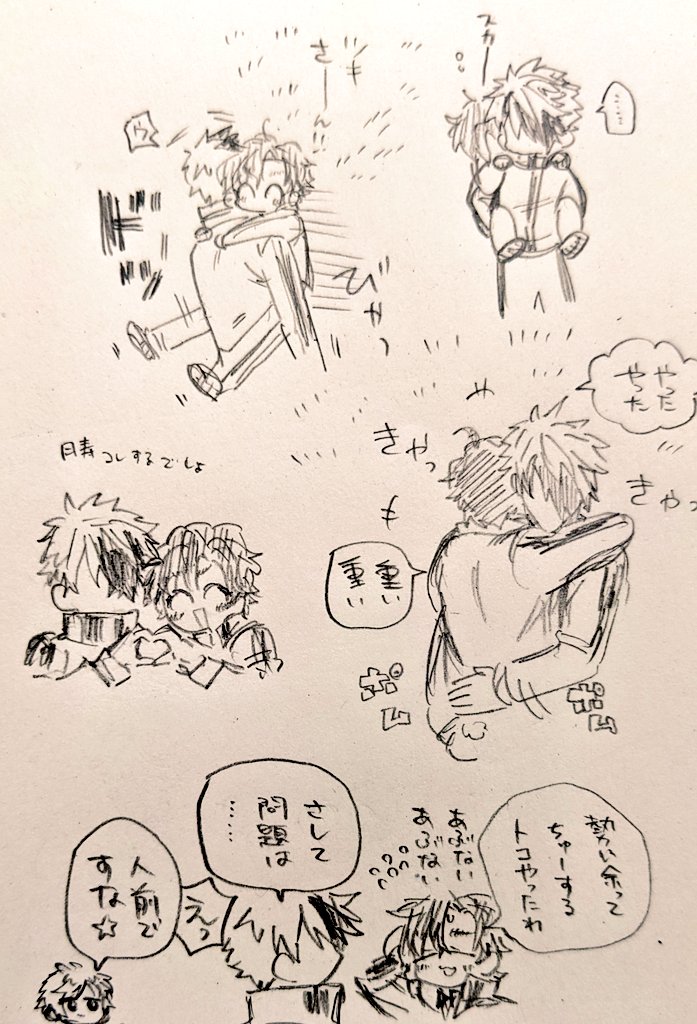 スカー
……
さーん!!
びゃっ
やった
やった
きゃっ
きゃっ
重い
重い
ポム
ポム
コレするでしょ
勢い余って
ちゅーする
トコやったわ
あぶない
あぶない
さして
問題は
……
えっ
人前で
すな☆